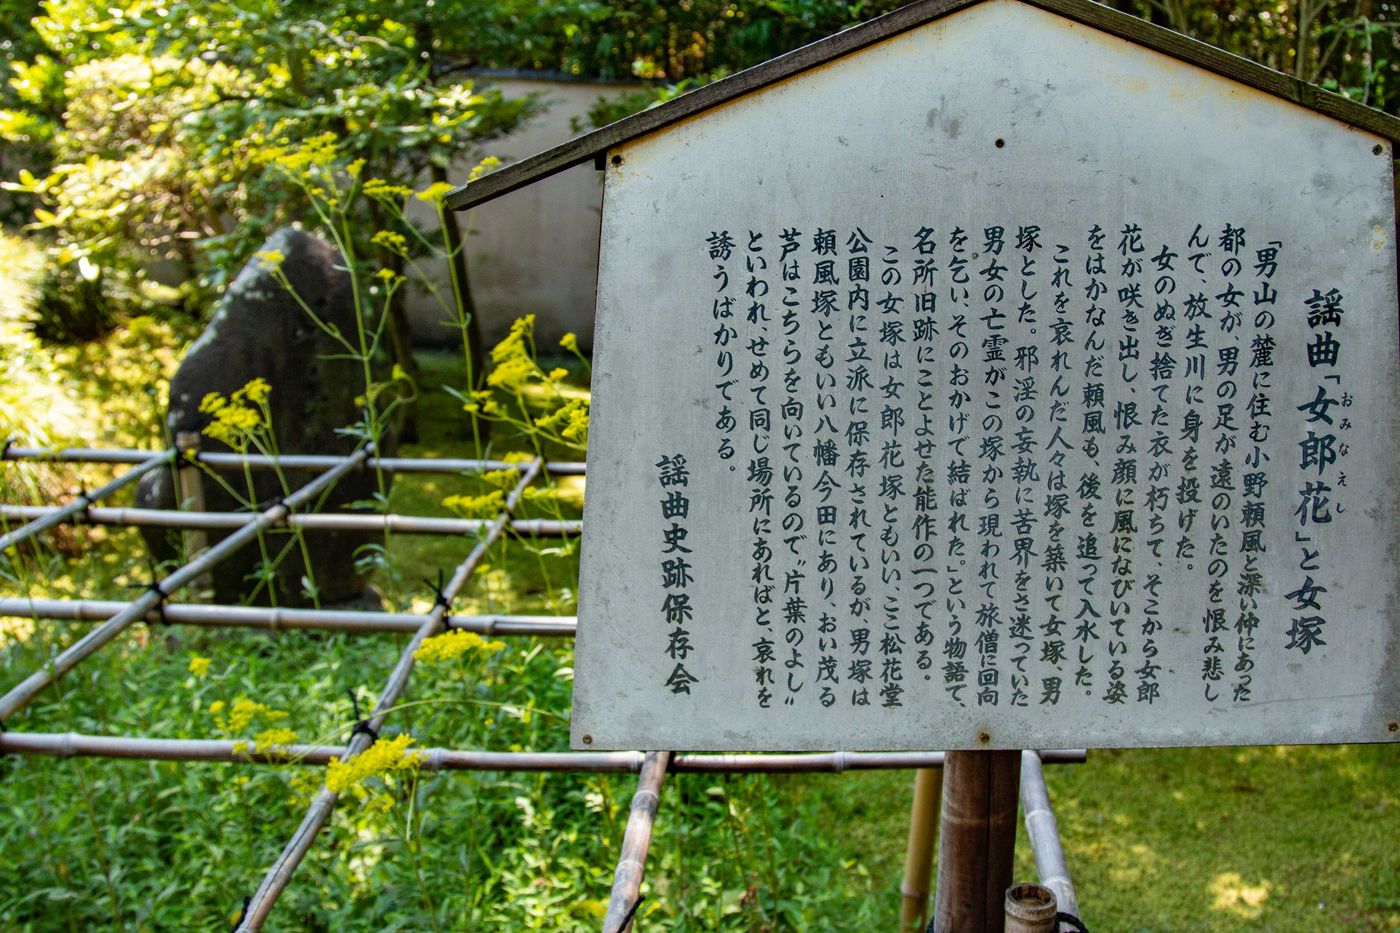 謡曲「女郎花」と女塚
おみなえし
「男山の麓に住む小野頼風と深い仲にあった
都の女が、男の足が遠のいたのを恨み悲し
んで、放生川に身を投げた。
女のぬぎ捨てた衣が朽ちて、そこから女郎
花が咲き出し、恨み顔に風になびいている姿
をはかなんだ頼風も、後を追って入水した。
これを哀れんだ人々は塚を築いて女塚、男
塚とした。邪淫の妄執に苦界をさ迷っていた
男女の亡霊がこの塚から現われて旅僧に回向
を乞い、そのおかげで結ばれた。」という物語で、
名所旧跡にことよせた能作の一つである。
この女塚は女郎花塚ともいい、ここ松花堂
公園内に立派に保存されているが、男塚は
頼風塚ともいい八幡今田にあり、おい茂る
芦はこちらを向いているので〝片葉のよし〟
といわれ、せめて同じ場所にあればと、哀れを
誘うばかりである。
謡曲史跡保存会